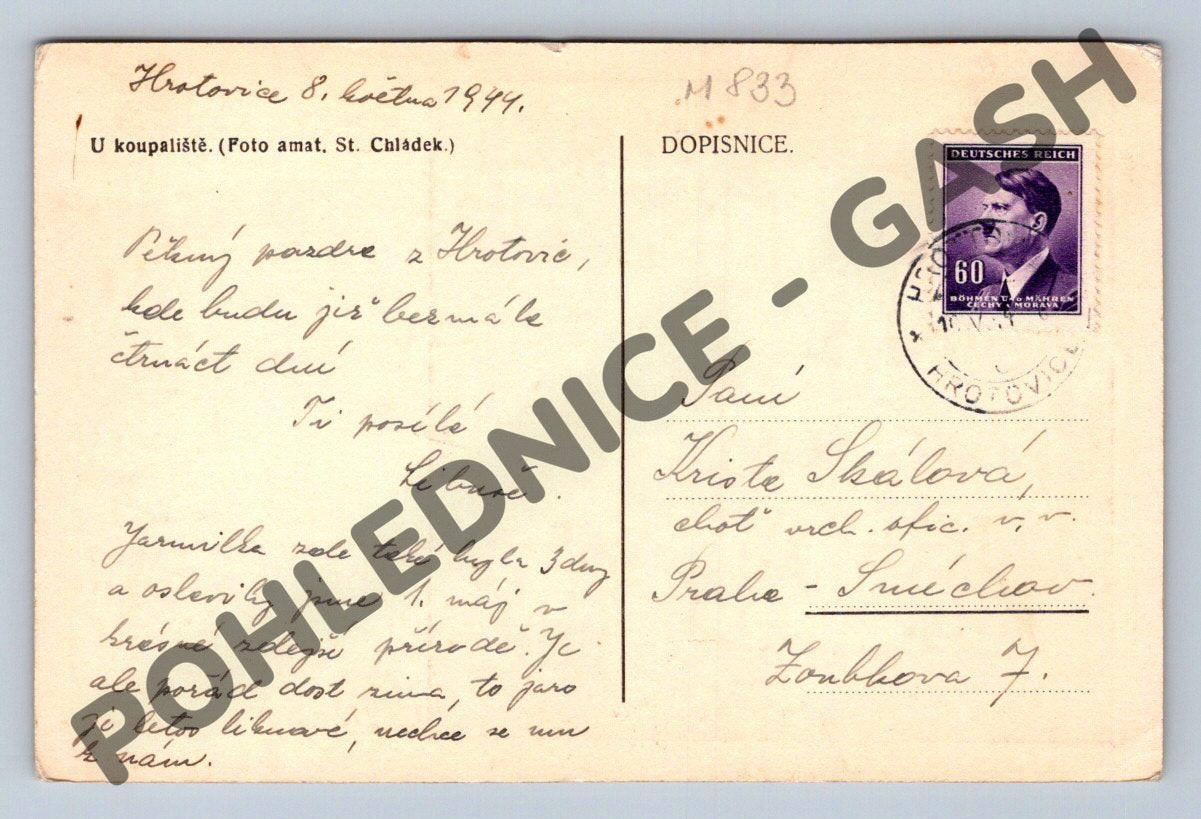 Hrotovice 8. května 1944.
M 833
U koupaliště. (Foto amat. St. Chládek.)
DOPISNICE.
DEUTSCHES REICH
60
BÖHMEN UND MÄHREN
ČECHY A MORAVA
HROTOVICE
Pěkný pozdra z Hrotovic,
kde budu již bezmála
čtrnáct dní
Ti posílá
Libuše.
Jarmilka zde také byla 3 dny
a oslavily jsme 1. máj v
krásné zdejší přírodě. Je
ale pořád dost zima, to jaro
je letos liknavé, nechce se mu
k nám.
Paní
Krista Skálová,
choť vrch. ofic. v. v.
Praha - Smíchov
Zoubkova 7.
POHLEDNICE - GASH